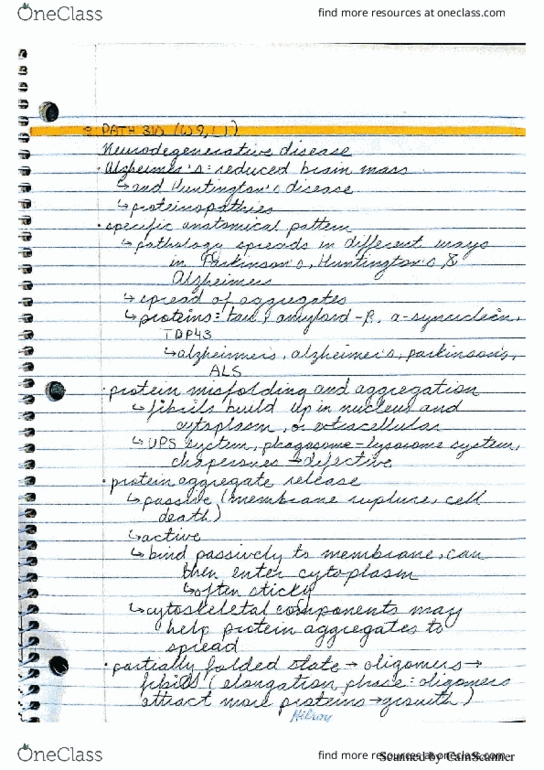 OneClass find more resources at oneclass.com
PATH 310 (W9, L1)
Neurodegenerative disease
· Alzheimer's: reduced brain mass
↳ and Huntington's disease
↳ proteinopathies
· specific anatomical pattern
↳ pathology spreads in different ways
in Parkinson's, Huntington's &
Alzheimers
↳ spread of aggregates
↳ proteins: tau, amyloid-β, α-synuclein,
TDP43
↳ alzheimers, alzheimer's, parkinson's,
ALS
· protein misfolding and aggregation
↳ fibrils build up in nucleus and
cytoplasm, or extracellular
↳ UPS system, phagosome-lysosome system,
chaperones → defective
· protein aggregate release
↳ passive (membrane rupture, cell
death)
↳ active
↳ bind passively to membrane, can
then enter cytoplasm
↳ often sticky
↳ cytoskeletal components may
help protein aggregates to
spread
· partially folded state → oligomers →
fibrils (elongation phase: oligomers
attract more proteins → growth)
Hilroy
OneClass find more resources at oneclass.com
Scanned by CamScanner